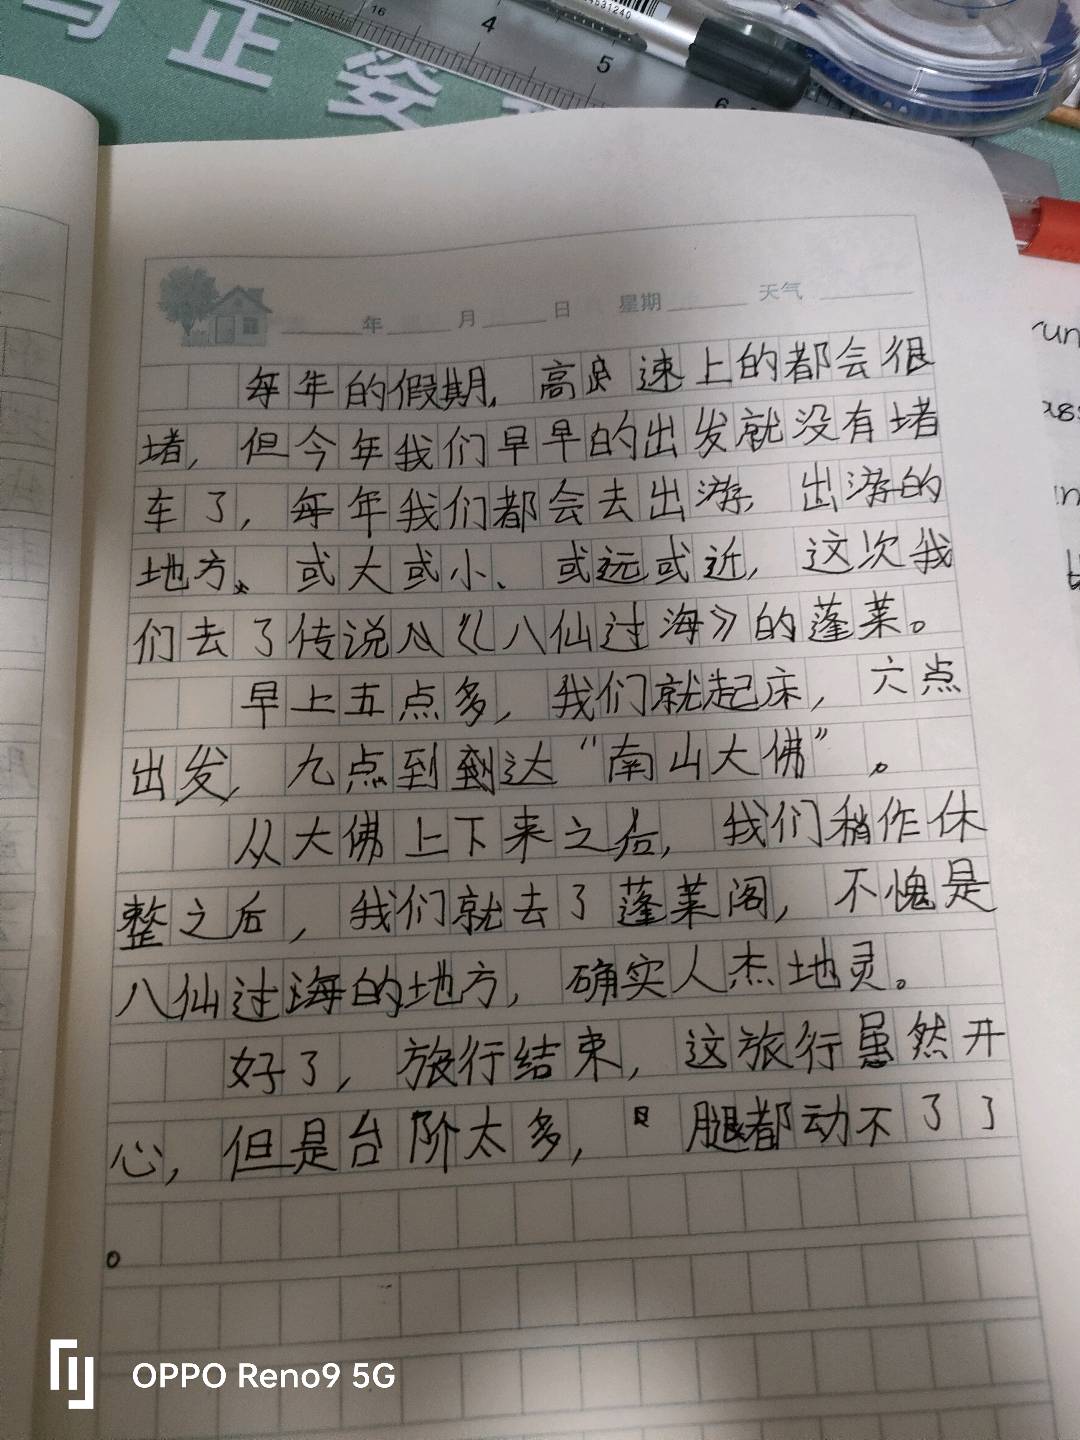 正姿
16
4
5
6
年 月 日 星期 天气
每年的假期，高速上的都会很
堵，但今年我们早早的出发就没有堵
车了，每年我们都会去出游，出游的
地方、或大或小、或远或近，这次我
们去了传说《八仙过海》的蓬莱。
早上五点多，我们就起床，六点
出发，九点到到达“南山大佛”。
从大佛上下来之后，我们稍作休
整之后，我们就去了蓬莱阁，不愧是
八仙过海的地方，确实人杰地灵。
好了，旅行结束，这旅行虽然开
心，但是台阶太多，腿都动不了了
。
OPPO Reno9 5G